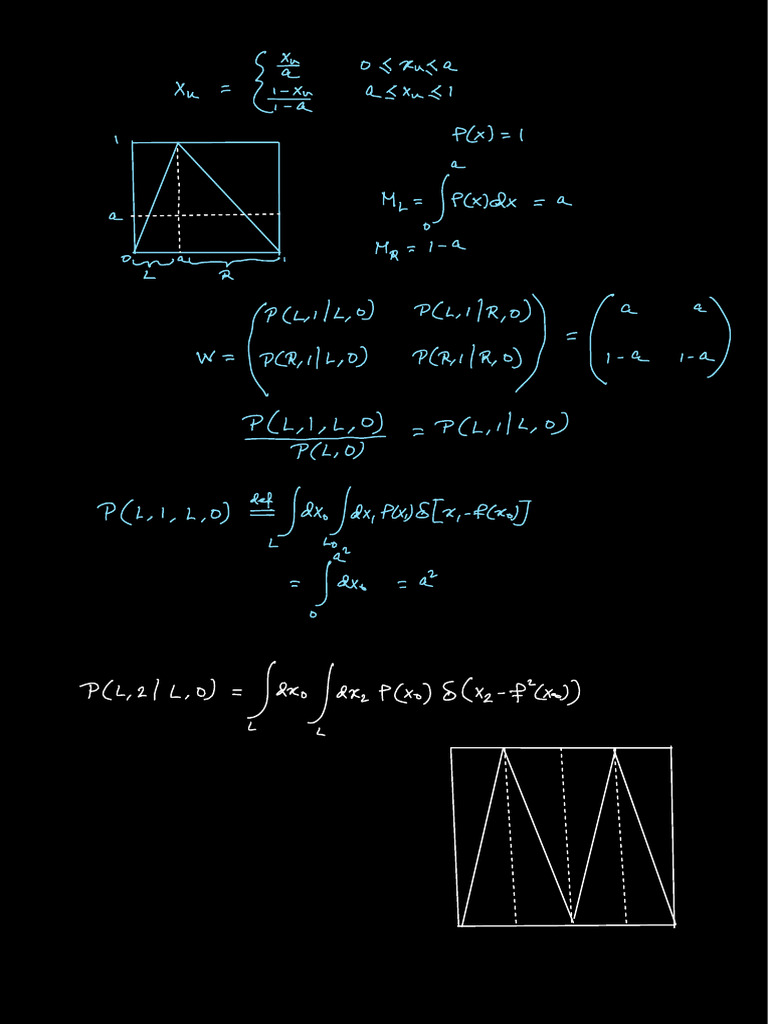 x_n = { x_n/a    0 ≤ x_n ≤ a
(1-x_n)/(1-a)    a ≤ x_n ≤ 1
P(x) = 1
M_L = ∫_0^a P(x)dx = a
M_R = 1-a
1
a
0 L a R 1
W = ( P(L,1|L,0)    P(L,1|R,0) ) = ( a    a )
( P(R,1|L,0)    P(R,1|R,0) )   ( 1-a    1-a )
P(L,1,L,0)/P(L,0) = P(L,1|L,0)
P(L,1,L,0) def= ∫_L dx_0 ∫_L0 dx_1 P(x_1) δ[x_1-f(x_0)]
= ∫_0^{a^2} dx_0 = a^2
P(L,2|L,0) = ∫_L dx_0 ∫_L dx_2 P(x_0) δ(x_2-f^2(x_0))